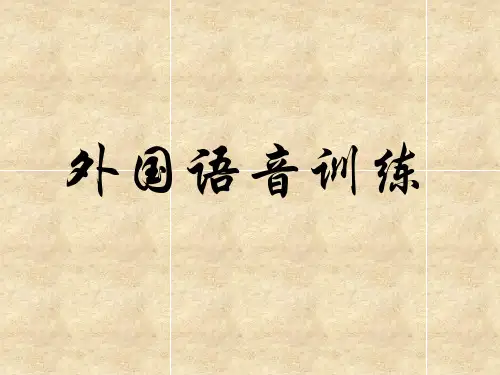 外国语音训练